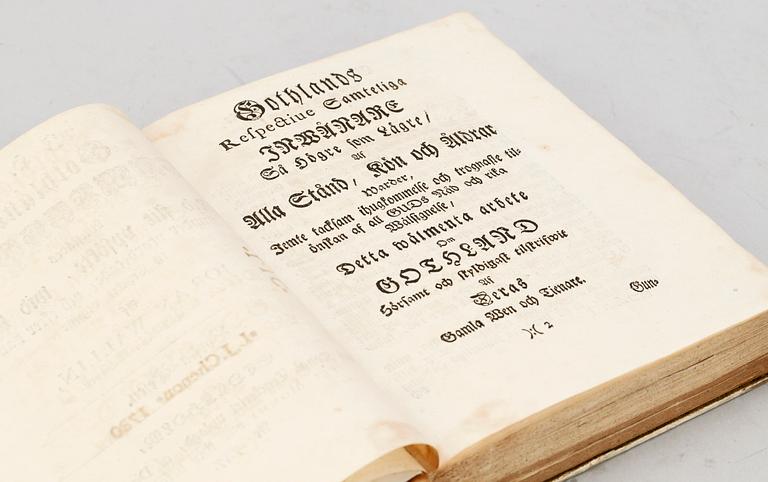 Gothlands
Respective Samteliga
INWÅNARE
Så Högre som Lägre/
Af
Alla Stånd, Kön och Åldrar
Warder,
Jemte tacksam ihugkommelse och trognaste til-
önskan af all GUDs Nåd och rika
Wälsignelse,
Detta wälmenta arbete
Om
GOTHLAND
Hörsamt och skyldigast tilskrifwit
Af
Deras
Gamla Wen och Tienare.
):( 2
Guns